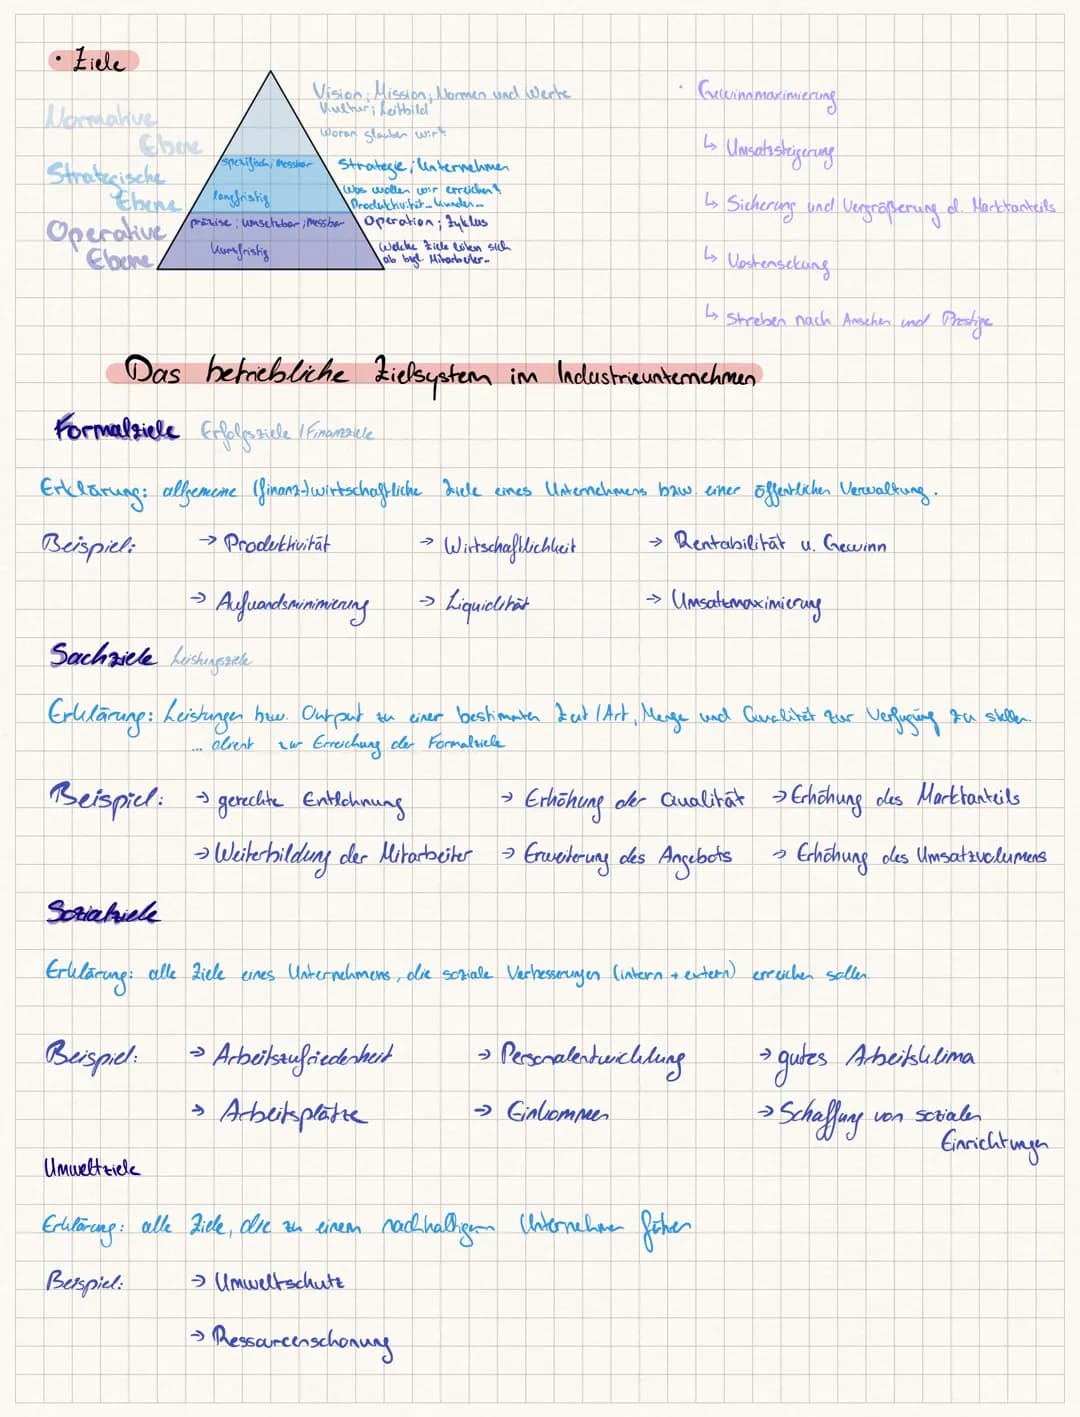 • Ziele
Normative
Ebene
Vision; Mission; Normen und Werte
Kultur; Leitbild
Woran glauben wir?
Strategische
Ebene
spezifisch; messbar
langfristig
Strategie; Unternehmen
Was wollen wir erreichen?
Produktivität... Kunden...
Operative
Ebene
präzise; umsetzbar; messbar
kurzfristig
Operation; Zyklus
Welche Ziele leiten sich
ab bzgl. Mitarbeiter...
• Gewinnmaximierung
↳ Umsatzsteigerung
↳ Sicherung und Vergrößerung d. Marktanteils
↳ Kostensekung
↳ Streben nach Ansehen und Prestige
Das betriebliche Zielsystem im Industrieunternehmen
Formalziele Erfolgsziele / Finanzziele
Erklärung: allgemeine (finanz-)wirtschaftliche Ziele eines Unternehmens bzw. einer öffentlichen Verwaltung.
Beispiel: → Produktivität → Wirtschaftlichkeit → Rentabilität u. Gewinn
→ Aufwandsminimierung → Liquidität → Umsatzmaximierung
Sachziele Leistungsziele
Erklärung: Leistungen bzw. Output zu einer bestimmten Zeit / Art, Menge und Qualität zur Verfügung zu stellen.
... dient zur Erreichung der Formalziele
Beispiel: → gerechte Entlohnung → Erhöhung der Qualität → Erhöhung des Marktanteils
→ Weiterbildung der Mitarbeiter → Erweiterung des Angebots → Erhöhung des Umsatzvolumens
Sozialziele
Erklärung: alle Ziele eines Unternehmens, die soziale Verbesserungen (intern + extern) erreichen sollen.
Beispiel: → Arbeitszufriedenheit → Personalentwicklung → gutes Arbeitsklima
→ Arbeitsplätze → Einkommen → Schaffung von sozialen
Einrichtungen
Umweltziele
Erklärung: alle Ziele, die zu einem nachhaltigen Unternehmen führen
Beispiel: → Umweltschutz
→ Ressourcenschonung